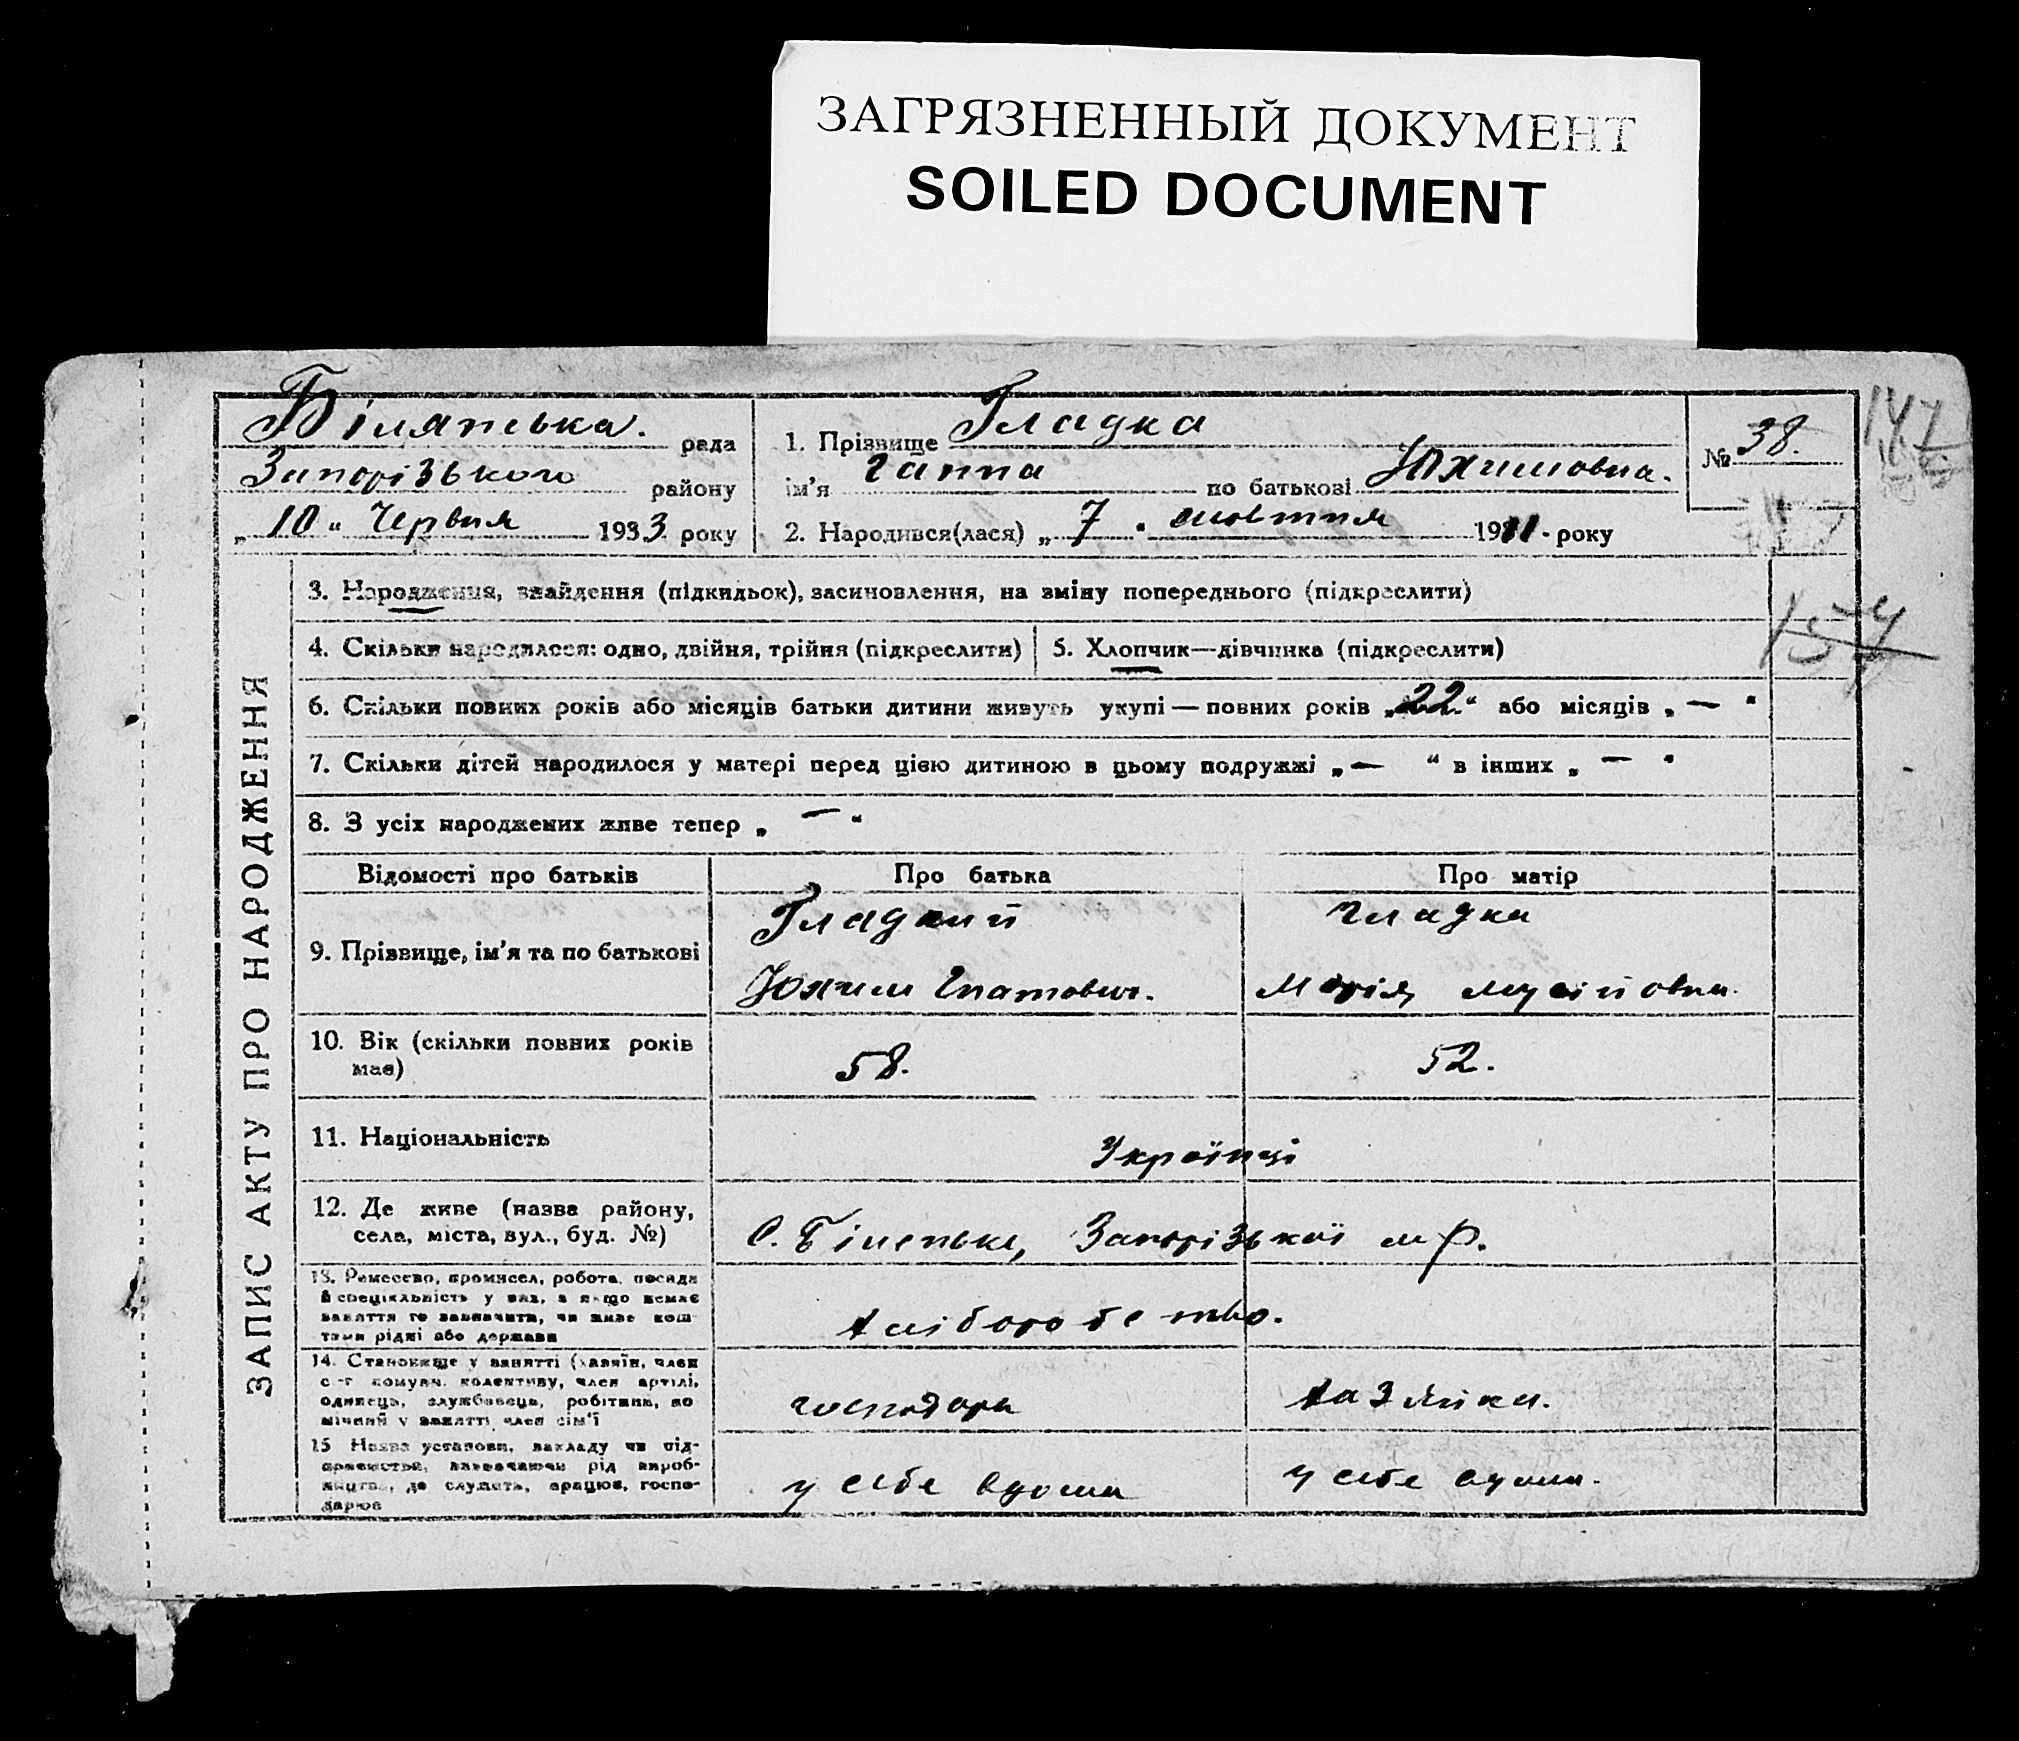 ЗАГРЯЗНЕННЫЙ ДОКУМЕНТ
SOILED DOCUMENT
147
рада
Запорізького району
„10“ Червня 1933 року
1. Прізвище Гладка
ім'я Ганна по батькові Юхимовна.
2. Народився(лася) „7“ жовтня 1911. року
№ 38.
157
ЗАПИС АКТУ ПРО НАРОДЖЕННЯ
3. Народження, знайдення (підкидьок), засиновлення, на зміну попереднього (підкреслити)
4. Скільки народилося: одно, двійня, трійня (підкреслити) 5. Хлопчик—дівчинка (підкреслити)
6. Скільки повних років або місяців батьки дитини живуть укупі — повних років „22“ або місяців „—“
7. Скільки дітей народилося у матері перед цією дитиною в цьому подружжі „—“ в інших „—“
8. З усіх народжених живе тепер „—“
Відомості про батьків Про батька Про матір
9. Прізвище, ім'я та по батькові
Гладкий Гладка
Юхим Гнатович. Марія Мусійовна.
10. Вік (скільки повних років
має)
58. 52.
11. Національність
Українці
12. Де живе (назва району,
села, міста, вул., буд. №)
С. Біленьке, Запорізької м/р.
13. Ремесево, промисел, робота, посада
й спеціяльність у них, а якщо немає
заняття то зазначити, чи живе кош-
тами рідні або держави
хліборобство.
14. Становище у занятті (хазяїн, член
с.-г. комуни, колективу, член артілі,
одинець, службовець, робітник, по
мічний у занятті член сім'ї
господарь хазяйка.
15 Назва установи, закладу чи під-
приємства, зазначаючи рід вироб-
ництва, де служить, працює, госпо-
дарює
у себе вдома у себе вдома.